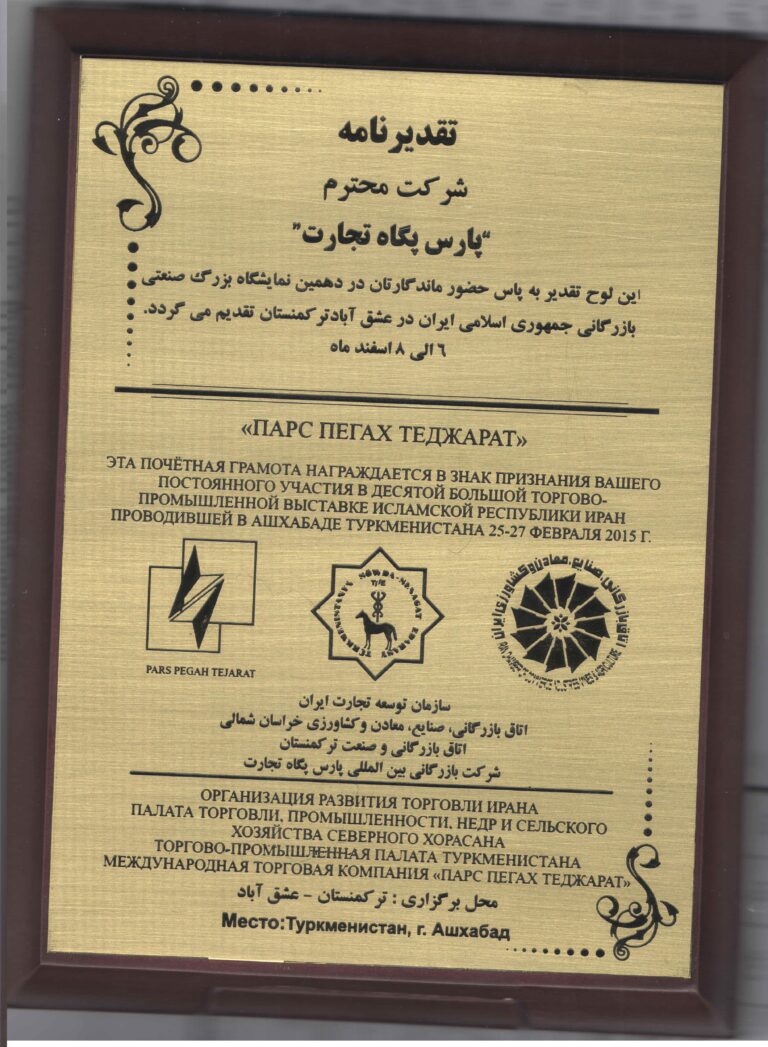 تقدیرنامه
شرکت محترم
“پارس پگاه تجارت”
این لوح تقدیر به پاس حضور ماندگارتان در دهمین نمایشگاه بزرگ صنعتی
بازرگانی جمهوری اسلامی ایران در عشق آبادترکمنستان تقدیم می گردد.
٦ الی ۸ اسفند ماه
«ПАРС ПЕГАХ ТЕДЖАРАТ»
ЭТА ПОЧЁТНАЯ ГРАМОТА НАГРАЖДАЕТСЯ В ЗНАК ПРИЗНАНИЯ ВАШЕГО
ПОСТОЯННОГО УЧАСТИЯ В ДЕСЯТОЙ БОЛЬШОЙ ТОРГОВО-
ПРОМЫШЛЕННОЙ ВЫСТАВКЕ ИСЛАМСКОЙ РЕСПУБЛИКИ ИРАН
ПРОВОДИВШЕЙ В АШХАБАДЕ ТУРКМЕНИСТАНА 25-27 ФЕВРАЛЯ 2015 Г.
PARS PEGAH TEJARAT
TÜRKMENISTANYŇ SÖWDA-SENAGAT EDARASY
اتاق بازرگانی، صنایع، معادن و کشاورزی ایران
سازمان توسعه تجارت ایران
اتاق بازرگانی، صنایع، معادن وکشاورزی خراسان شمالی
اتاق بازرگانی و صنعت ترکمنستان
شرکت بازرگانی بین المللی پارس پگاه تجارت
ОРГАНИЗАЦИЯ РАЗВИТИЯ ТОРГОВЛИ ИРАНА
ПАЛАТА ТОРГОВЛИ, ПРОМЫШЛЕННОСТИ, НЕДР И СЕЛЬСКОГО
ХОЗЯЙСТВА СЕВЕРНОГО ХОРАСАНА
ТОРГОВО-ПРОМЫШЛЕННАЯ ПАЛАТА ТУРКМЕНИСТАНА
МЕЖДУНАРОДНАЯ ТОРГОВАЯ КОМПАНИЯ «ПАРС ПЕГАХ ТЕДЖАРАТ»
محل برگزاری : ترکمنستان - عشق آباد
Место:Туркменистан, г. Ашхабад